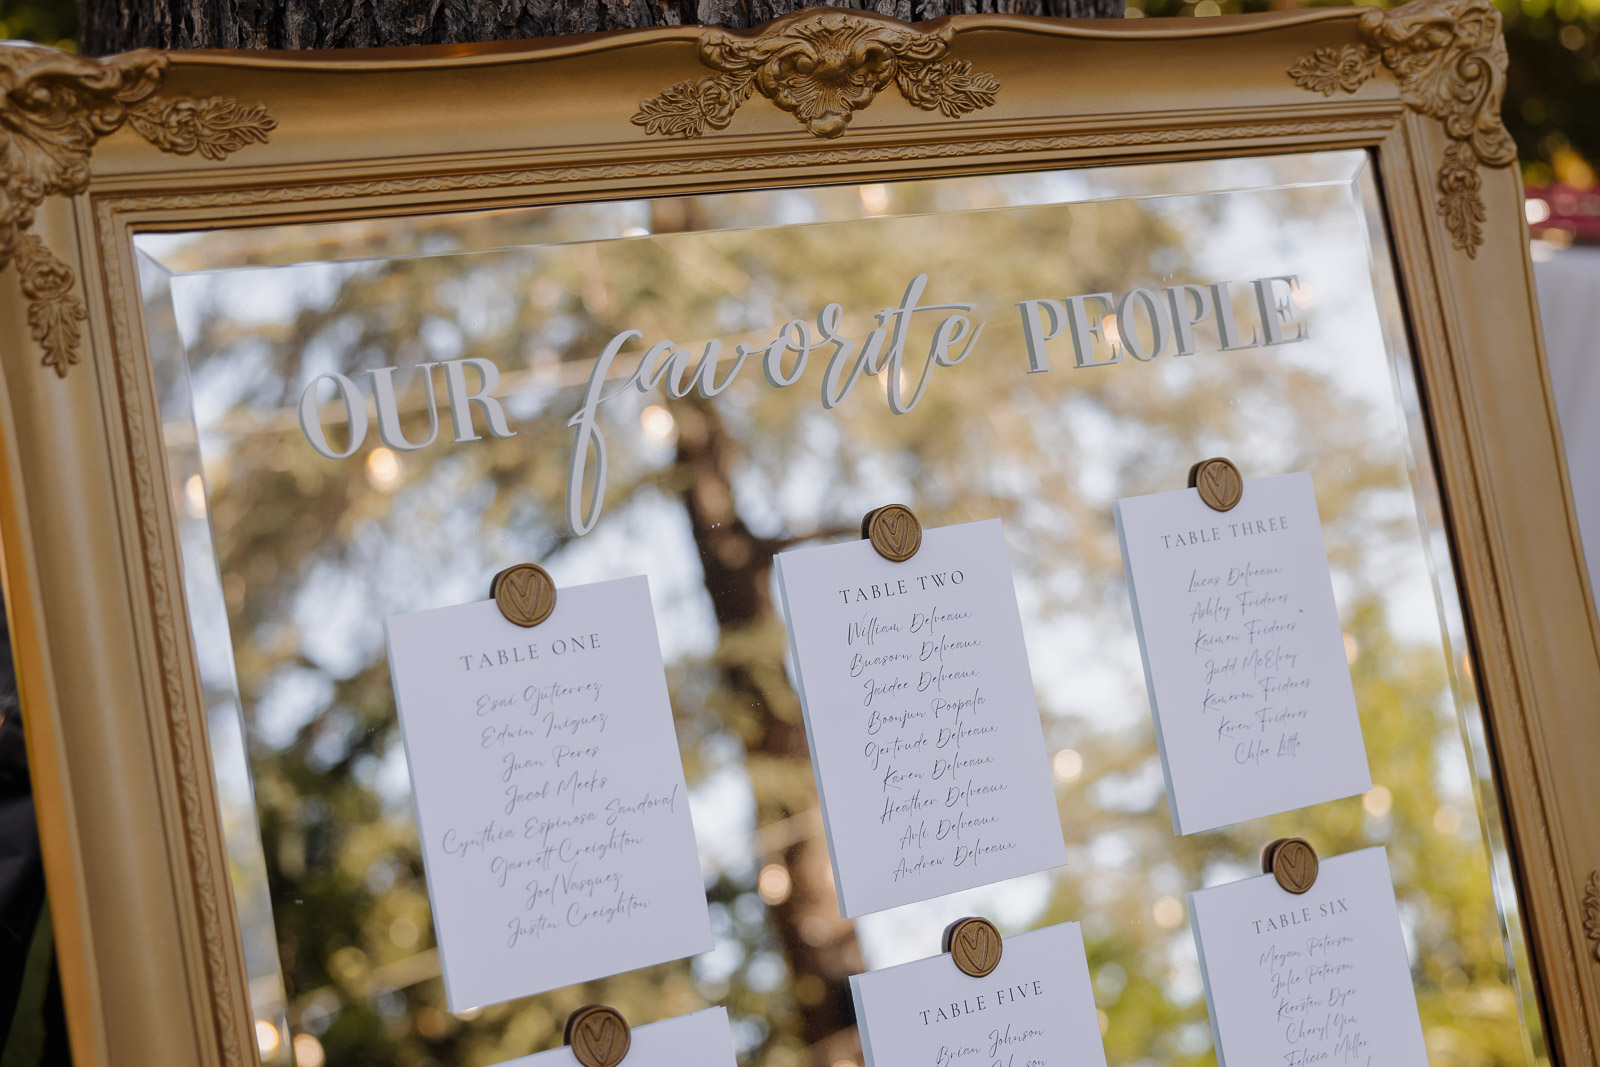 OUR favorite PEOPLE
TABLE ONE
Esai Gutierrez
Edwin Iniguez
Juan Peres
Jacob Meeks
Cynthia Espinosa Sandoval
Garrett Creighton
Joel Vasquez
Justin Creighton
TABLE TWO
William Delveaux
Buasorn Delveaux
Jaidee Delveaux
Boonjun Poopala
Gertrude Delveaux
Karen Delveaux
Heather Delveaux
Arli Delveaux
Andrew Delveaux
TABLE THREE
Lucas Delveaux
Ashley Frideres
Kaimen Frideres
Judd McElroy
Kameron Frideres
Koren Frideres
Chloe Little
TABLE FIVE
Brian Johnson
TABLE SIX
Megan Peterson
Julie Peterson
Kiersten Dyer
Cheryl Yim
Felicia Miller